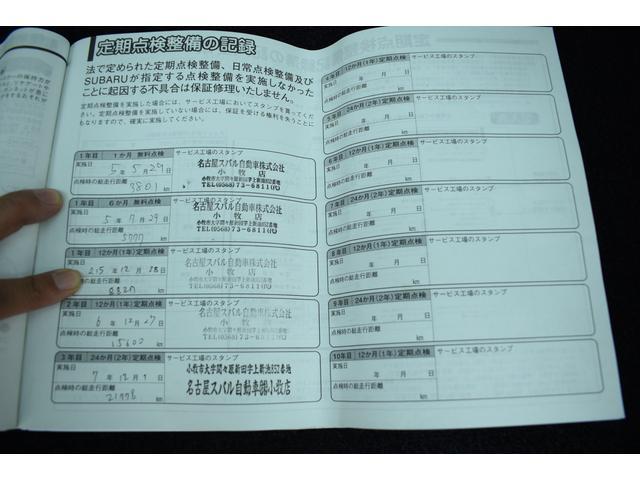 定期点検整備の記録
法で定められた定期点検整備、日常点検整備及び
SUBARUが指定する点検整備を実施しなかった
ことに起因する不具合は保証修理いたしません。
定期点検整備を実施した場合には、サービス工場においてスタンプを貰ってくだ
さい。定期点検整備を実施していない場合には、保証を受ける権利を失うことに
もなりますので、確実に実施してください。
1年目 1か月 無料点検 サービス工場のスタンプ
実施日 5年 5月29日
点検時の総走行距離
3801 km
名古屋スバル自動車株式会社
小牧店
小牧市大字間々原新田字上新池052番地
TEL(0568)73-6811㈹
1年目 6か月 無料点検 サービス工場のスタンプ
実施日 5年 7月29日
点検時の総走行距離
5777 km
名古屋スバル自動車株式会社
小牧店
TEL(0568)73-6811㈹
1年目 12か月(1年)定期点検 サービス工場のスタンプ
実施日 年12月28日
点検時の総走行距離
km
名古屋スバル自動車株式会社
小牧店
TEL(0568)73-6811㈹
2年目 12か月(1年)定期点検 サービス工場のスタンプ
実施日 6年12月27日
点検時の総走行距離
15602 km
名古屋スバル自動車株式会社
小牧店
3年目 24か月(2年)定期点検 サービス工場のスタンプ
実施日 7年12月 日
点検時の総走行距離
21778 km
小牧市大字間々原新田字上新池052番地
名古屋スバル自動車㈱小牧店
4年目 12か月(1年)定期点検 サービス工場のスタンプ
実施日 年 月 日
点検時の総走行距離
km
5年目 24か月(2年)定期点検 サービス工場のスタンプ
実施日 年 月 日
点検時の総走行距離
km
6年目 12か月(1年)定期点検 サービス工場のスタンプ
実施日 年 月 日
点検時の総走行距離
km
7年目 24か月(2年)定期点検 サービス工場のスタンプ
実施日 年 月 日
点検時の総走行距離
km
8年目 12か月(1年)定期点検 サービス工場のスタンプ
実施日 年 月 日
点検時の総走行距離
km
9年目 24か月(2年)定期点検 サービス工場のスタンプ
実施日 年 月 日
点検時の総走行距離
km
10年目 12か月(1年)定期点検 サービス工場のスタンプ
実施日 年 月 日
点検時の総走行距離
km